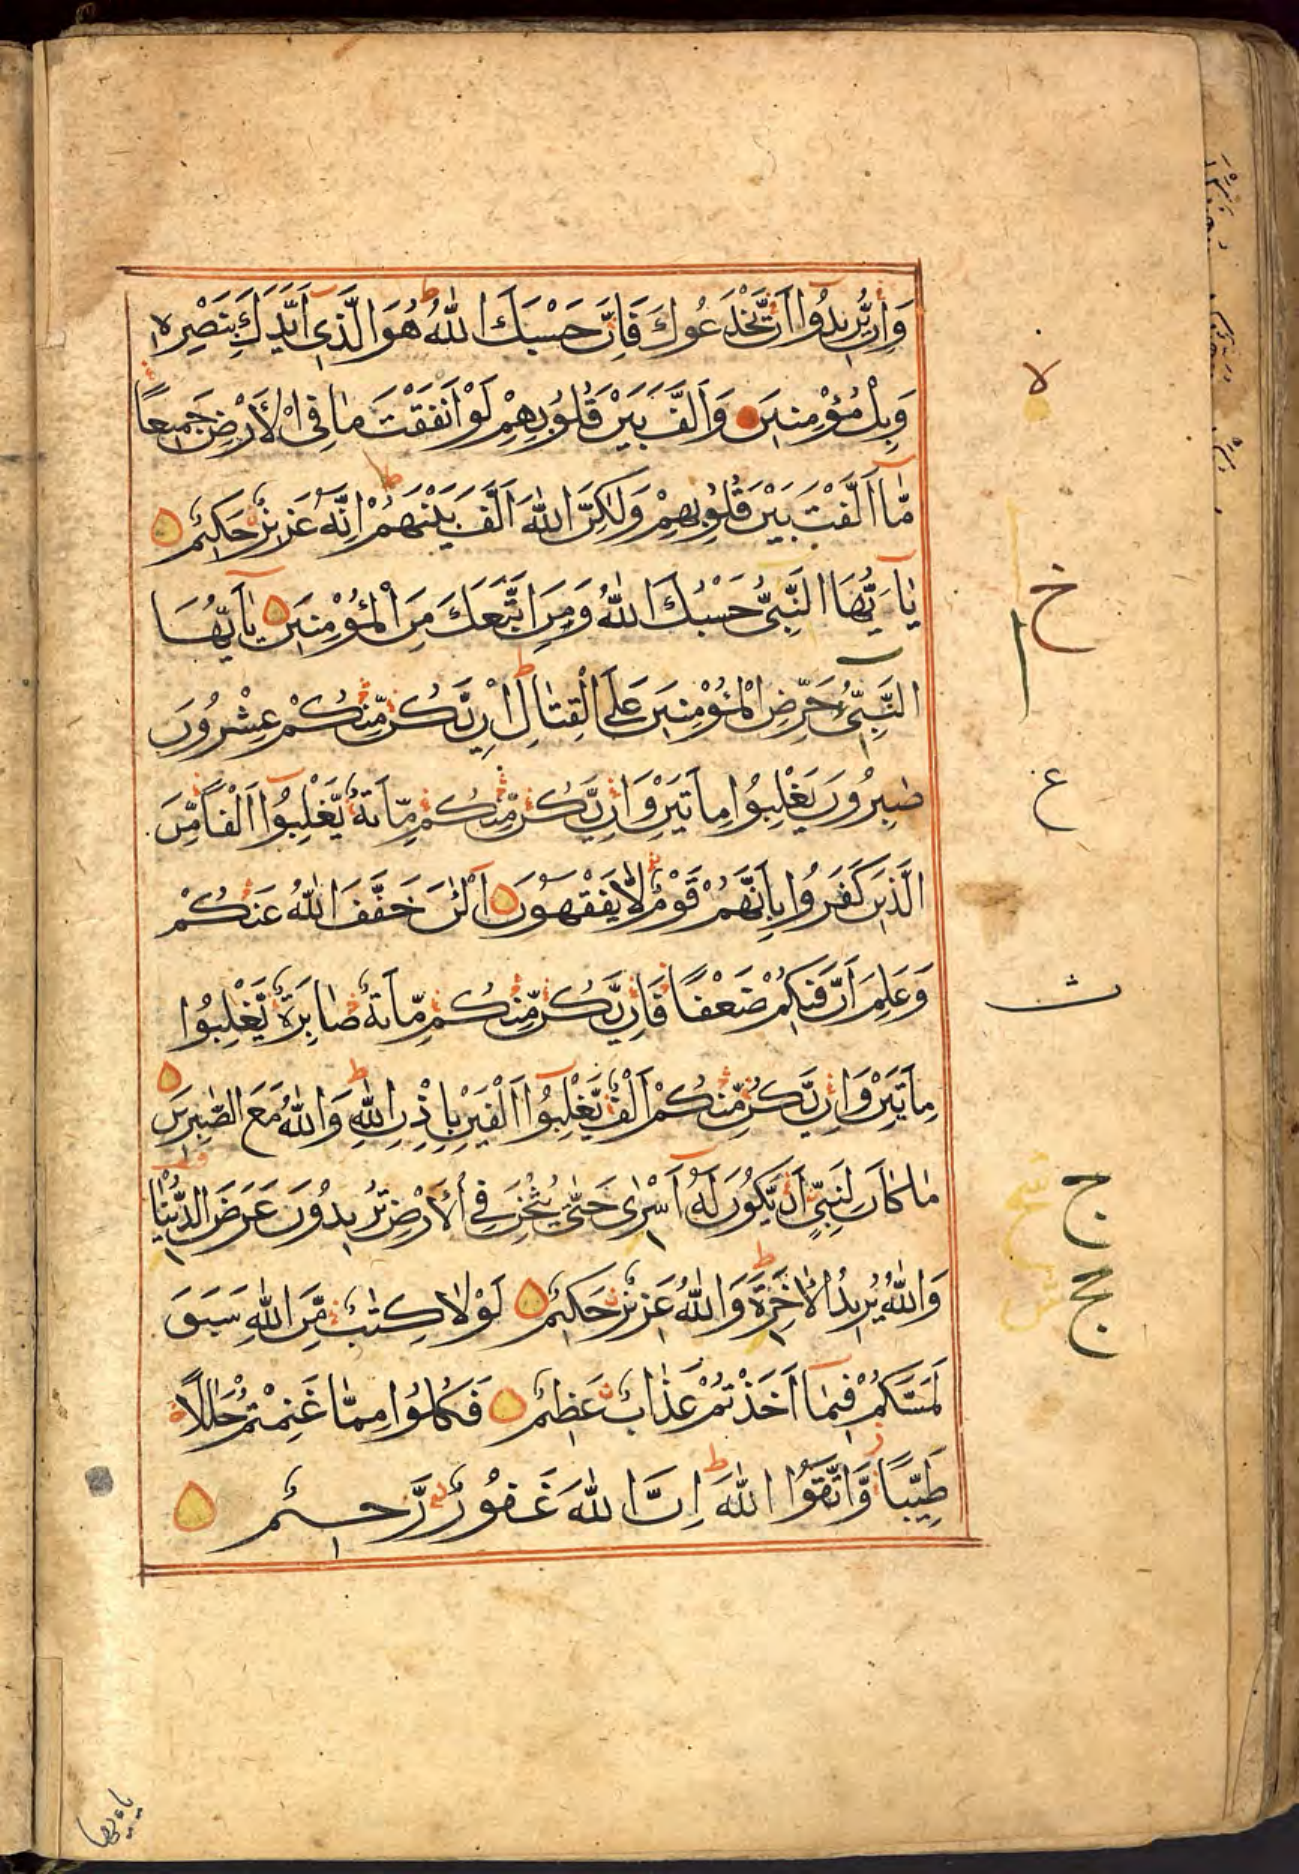 وَاِنْ يُّرِيْدُوْٓا اَنْ يَّخْدَعُوْكَ فَاِنَّ حَسْبَكَ اللّٰهُ ط هُوَ الَّذِيْٓ اَيَّدَكَ بِنَصْرِهٖ
وَبِالْمُؤْمِنِيْنَ وَاَلَّفَ بَيْنَ قُلُوْبِهِمْ لَوْ اَنْفَقْتَ مَا فِى الْاَرْضِ جَمِيْعًا
مَّآ اَلَّفْتَ بَيْنَ قُلُوْبِهِمْ وَلٰكِنَّ اللّٰهَ اَلَّفَ بَيْنَهُمْ ط اِنَّهٗ عَزِيْزٌ حَكِيْمٌ
يٰٓاَيُّهَا النَّبِيُّ حَسْبُكَ اللّٰهُ وَمَنِ اتَّبَعَكَ مِنَ الْمُؤْمِنِيْنَ يٰٓاَيُّهَا
النَّبِيُّ حَرِّضِ الْمُؤْمِنِيْنَ عَلَى الْقِتَالِ ط اِنْ يَّكُنْ مِّنْكُمْ عِشْرُوْنَ
صٰبِرُوْنَ يَغْلِبُوْا مِائَتَيْنِ وَاِنْ يَّكُنْ مِّنْكُمْ مِّائَةٌ يَّغْلِبُوْٓا اَلْفًا مِّنَ
الَّذِيْنَ كَفَرُوْا بِاَنَّهُمْ قَوْمٌ لَّا يَفْقَهُوْنَ اَلْئٰنَ خَفَّفَ اللّٰهُ عَنْكُمْ
وَعَلِمَ اَنَّ فِيْكُمْ ضَعْفًا فَاِنْ يَّكُنْ مِّنْكُمْ مِّائَةٌ صَابِرَةٌ يَّغْلِبُوْا
مِائَتَيْنِ وَاِنْ يَّكُنْ مِّنْكُمْ اَلْفٌ يَّغْلِبُوْٓا اَلْفَيْنِ بِاِذْنِ اللّٰهِ ط وَاللّٰهُ مَعَ الصّٰبِرِيْنَ
مَا كَانَ لِنَبِيٍّ اَنْ يَّكُوْنَ لَهٗٓ اَسْرٰى حَتّٰى يُثْخِنَ فِى الْاَرْضِ تُرِيْدُوْنَ عَرَضَ الدُّنْيَا
وَاللّٰهُ يُرِيْدُ الْاٰخِرَةَ ط وَاللّٰهُ عَزِيْزٌ حَكِيْمٌ لَوْلَا كِتٰبٌ مِّنَ اللّٰهِ سَبَقَ
لَمَسَّكُمْ فِيْمَآ اَخَذْتُمْ عَذَابٌ عَظِيْمٌ فَكُلُوْا مِمَّا غَنِمْتُمْ حَلٰلًا
طَيِّبًا وَّاتَّقُوا اللّٰهَ ط اِنَّ اللّٰهَ غَفُوْرٌ رَّحِيْمٌ
ه
خ
ع
ج
ج
يٰاَيها